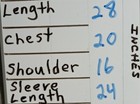 Length 28
Chest 20
Shoulder 16
Sleeve
Length 24
INCHES